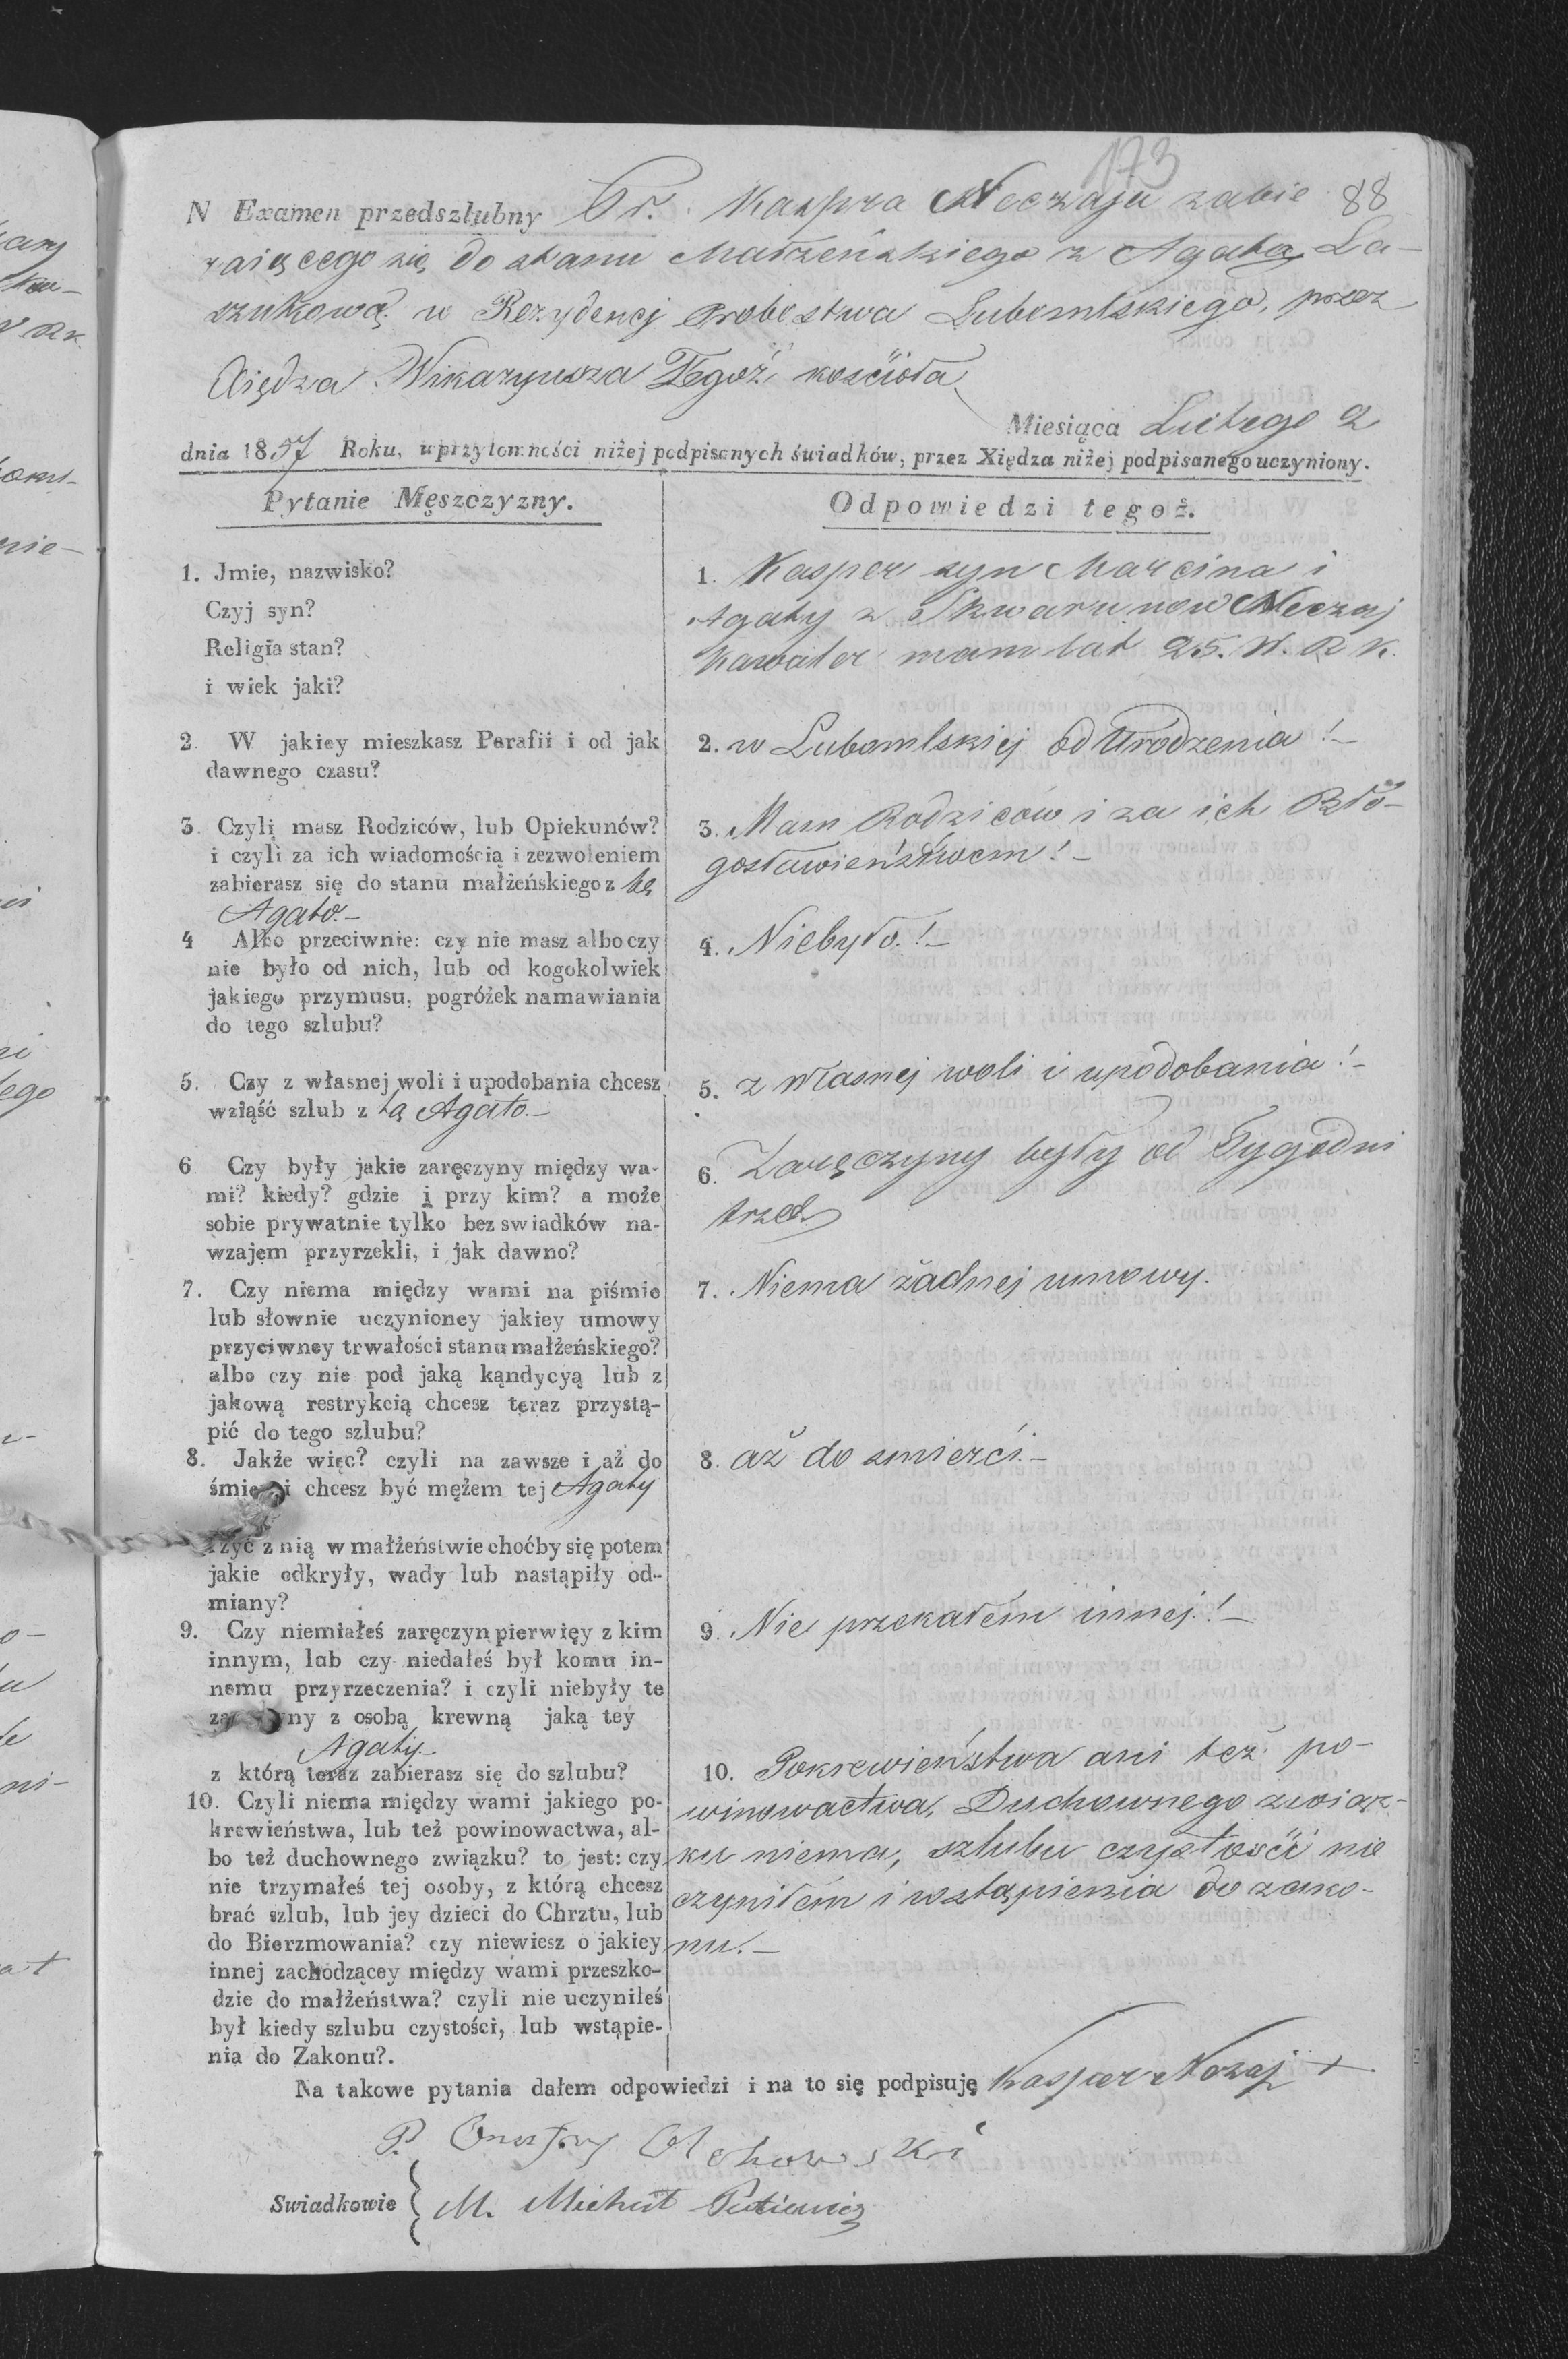 173
88
N Examen przedszlubny Ur. Kaspra Neczaja zabie
raiącego się do stanu Małżeńskiego z Agatą La-
szukową w Rezydencj Probostwa Lubomlskiego, przez
Xiędza Wikaryusza Tegoż kościoła
Miesiąca Lutego 2
dnia 1857 Roku, w przytomności niżej podpisanych świadków, przez Xiędza niżej podpisanego uczyniony.
Pytanie Męszczyzny.
1. Jmie, nazwisko?
Czyj syn?
Religia stan?
i wiek jaki?
2. W jakiey mieszkasz Parafii i od jak
dawnego czasu?
3. Czyli masz Rodziców, lub Opiekunów?
i czyli za ich wiadomością i zezwoleniem
zabierasz się do stanu małżeńskiego z tą
Agato.-
4 Albo przeciwnie: czy nie masz albo czy
nie było od nich, lub od kogokolwiek
jakiego przymusu, pogróżek namawiania
do tego szlubu?
5. Czy z własnej woli i upodobania chcesz
wziąść szlub z tą Agato.-
6 Czy były jakie zaręczyny między wa-
mi? kiedy? gdzie i przy kim? a może
sobie prywatnie tylko bez swiadków na-
wzajem przyrzekli, i jak dawno?
7. Czy niema między wami na piśmie
lub słownie uczynioney jakiey umowy
przyciwney trwałości stanu małżeńskiego?
albo czy nie pod jaką kąndycyą lub z
jakową restrykcią chcesz teraz przystą-
pić do tego szlubu?
8. Jakże więc? czyli na zawsze i aż do
śmierci chcesz być mężem tej Agaty
i żyć z nią w małżeństwie choćby się potem
jakie odkryły, wady lub nastąpiły od-
miany?
9. Czy niemiałeś zaręczyn pierwięy z kim
innym, lub czy niedałeś był komu in-
nemu przyrzeczenia? i czyli niebyły te
zaręczyny z osobą krewną jaką tey
Agaty-
z którą teraz zabierasz się do szlubu?
10. Czyli niema między wami jakiego po-
krewieństwa, lub też powinowactwa, al-
bo też duchownego związku? to jest: czy
nie trzymałeś tej osoby, z którą chcesz
brać szlub, lub jey dzieci do Chrztu, lub
do Bierzmowania? czy niewiesz o jakiey
innej zachodzącey między wami przeszko-
dzie do małżeństwa? czyli nie uczyniłeś
był kiedy szlubu czystości, lub wstąpie-
nia do Zakonu?.
Odpowiedzi tegoż.
1. Kasper syn Marcina i
Agaty z Skwarunow Neczaj
Kawaler mam lat 25. W. R K.
2. w Lubomlskiej od Urodzenia!-
3. Mam Rodziców i za ich Bło-
gosławieństwem!-
4. Niebyło.!-
5. z własnej woli i upodobania!-
6. Zaręczyny były od Tygodni
trzech
7. Niema żadnej umowy.
8. aż do smierći.-
9. Nie przekałem innej!-
10. Pokrewieństwa ani też po-
winowactwa, Duchownego związ-
ku niema, szlubu czystości nie
czyniłem i wstąpienia do zako-
nu.-
Na takowe pytania dałem odpowiedzi i na to się podpisuję Kasper Nozaj +
P. Onufry Olchowski
Swiadkowie { M. Michał